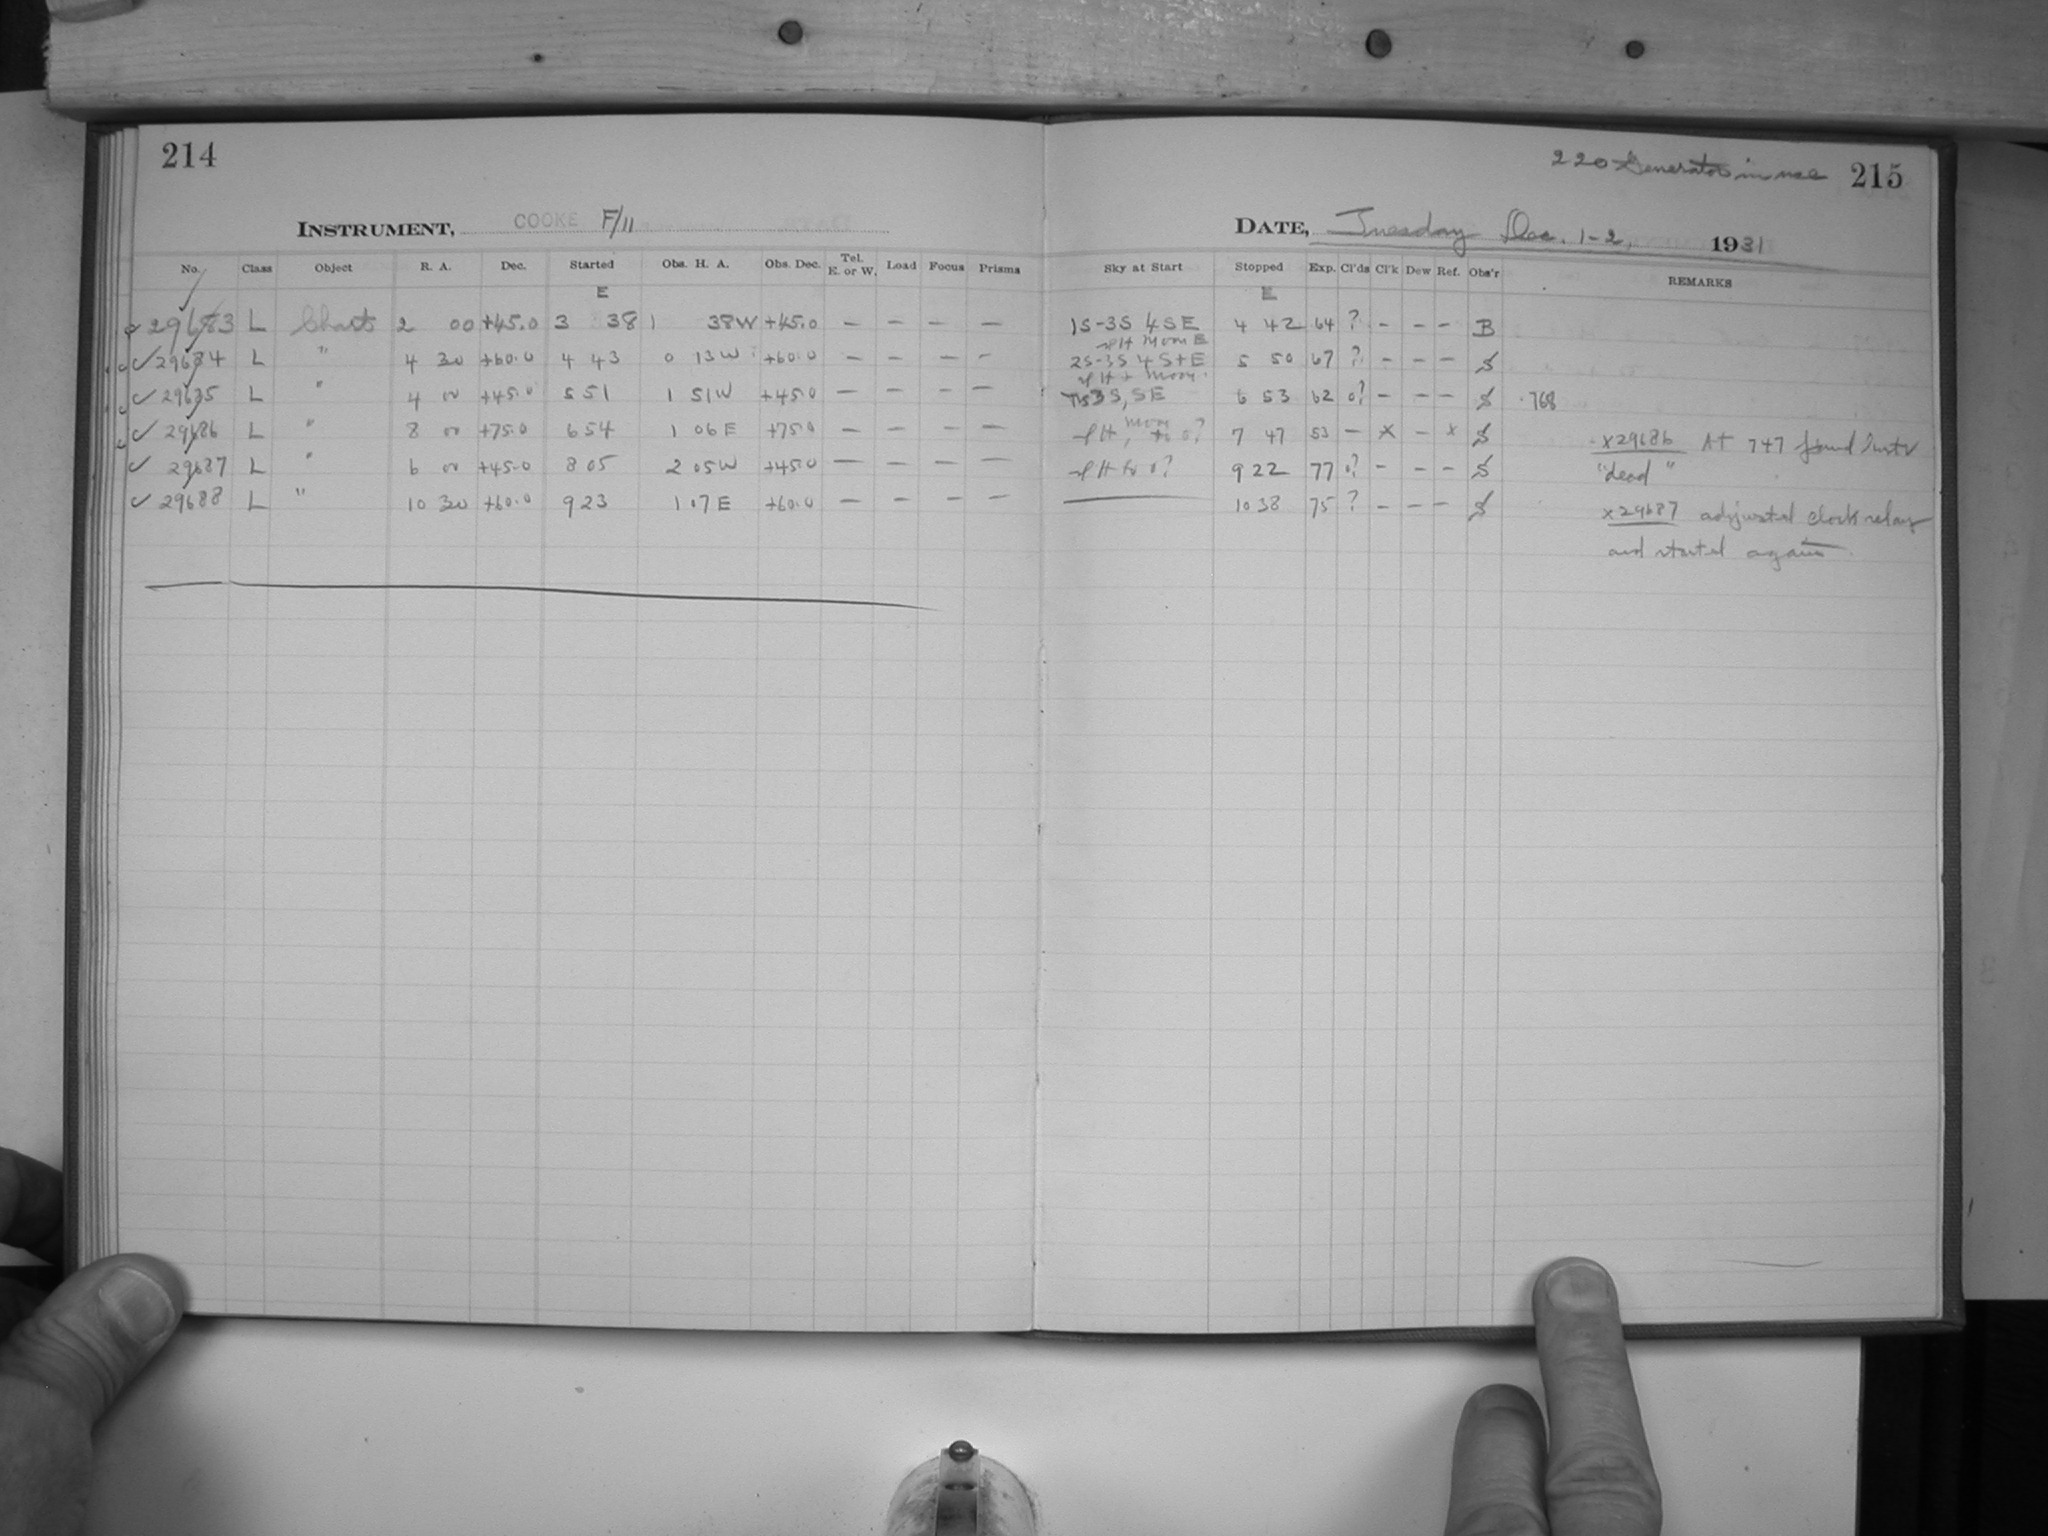 214
220 Generator in use 215
INSTRUMENT, COOKE F/11
DATE, Tuesday Dec. 1-2, 1931
No. Class Object R. A. Dec. Started Obs. H. A. Obs. Dec. Tel. E. or W. Load Focus Prisms Sky at Start Stopped Exp. Cl'ds Cl'k Dew Ref. Obs'r REMARKS
E E
29683 L Chart 2 00 +45.0 3 38 1 38W +45.0 — — — — 1S-3S 4SE 4 42 64 ? - - - B
Moon E
✓ 29684 L " 4 30 +60.0 4 43 0 13W +60.0 — — — — 2S-3S 4S+E 5 50 67 ? - - - S
+ Moon
✓ 29685 L " 4 00 +45.0 5 51 1 51W +45.0 — — — — S, SE 6 53 62 0? - - - S 768
Moon
✓ 29686 L " 8 00 +75.0 6 54 1 06E +75.0 — — — — to 0? 7 47 53 - x - x S x29686 At 747 found Instr
✓ 29687 L " 6 00 +45.0 8 05 2 05W +45.0 — — — — to 0? 9 22 77 0? - - - S "dead"
✓ 29688 L " 10 30 +60.0 9 23 1 07E +60.0 — — — — —— 10 38 75 ? - - - S x29687 adjusted clock relay
and started again.